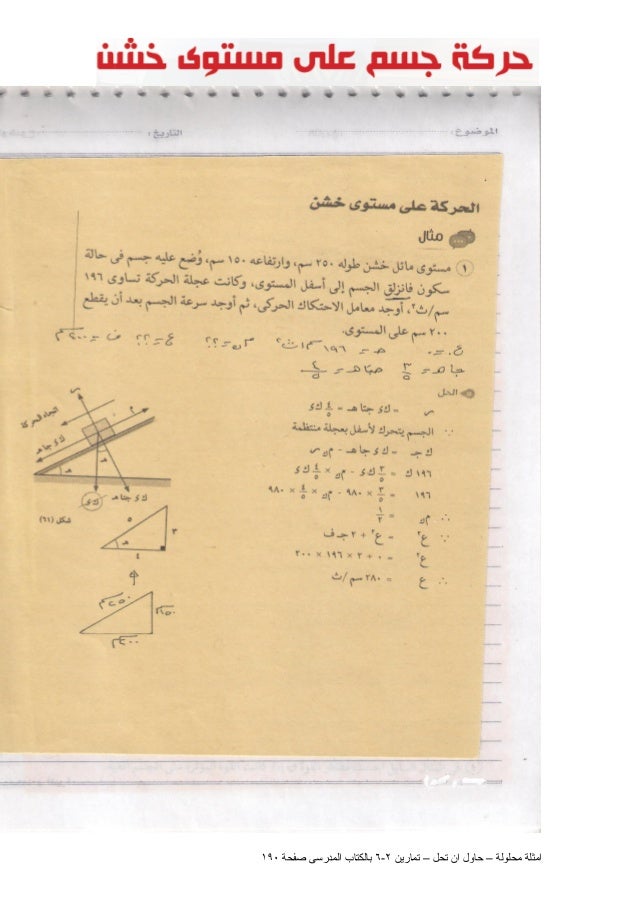 حركة جسم على مستوى خشن
الموضوع:
التاريخ:
الحركة على مستوى خشن
مثال
١ مستوى مائل خشن طوله ٢٥٠ سم، وارتفاعه ١٥٠ سم، وُضع عليه جسم فى حالة
سكون فانزلق الجسم إلى أسفل المستوى، وكانت عجلة الحركة تساوى ١٩٦
سم/ث٢، أوجد معامل الاحتكاك الحركى، ثم أوجد سرعة الجسم بعد أن يقطع
٢٠٠ سم على المستوى.
ع. = . حـ = ١٩٦ سم/ث٢ مك = ؟؟ ع = ؟؟ ف = ٢٠٠سم
جاهـ = ٣/٥
الحل
ر = ك ء جتا هـ = ٤/٥ ك ء
∵ الجسم يتحرك لأسفل بعجلة منتظمة
ك جـ = ك ء جا هـ - مك ر
١٩٦ ك = ٣/٥ ك ء - مك × ٤/٥ ك ء
١٩٦ = ٣/٥ × ٩٨٠ - مك × ٤/٥ × ٩٨٠
∴ مك = ١/٢
∵ ع٢ = ع.٢ + ٢ جـ ف
ع٢ = ٠ + ٢ × ١٩٦ × ٢٠٠
∴ ع = ٢٨٠ سم/ث
ر
اتجاه الحركة
ك ء جا هـ
م
هـ
ك ء
ك ء جتا هـ
شكل (٦١)
٥
٣
هـ
٤
٢٥٠سم
١٥٠
٢٠٠سم
امثلة محلولة – حاول ان تحل – تمارين ٢-٦ بالكتاب المدرسى صفحة ١٩٠